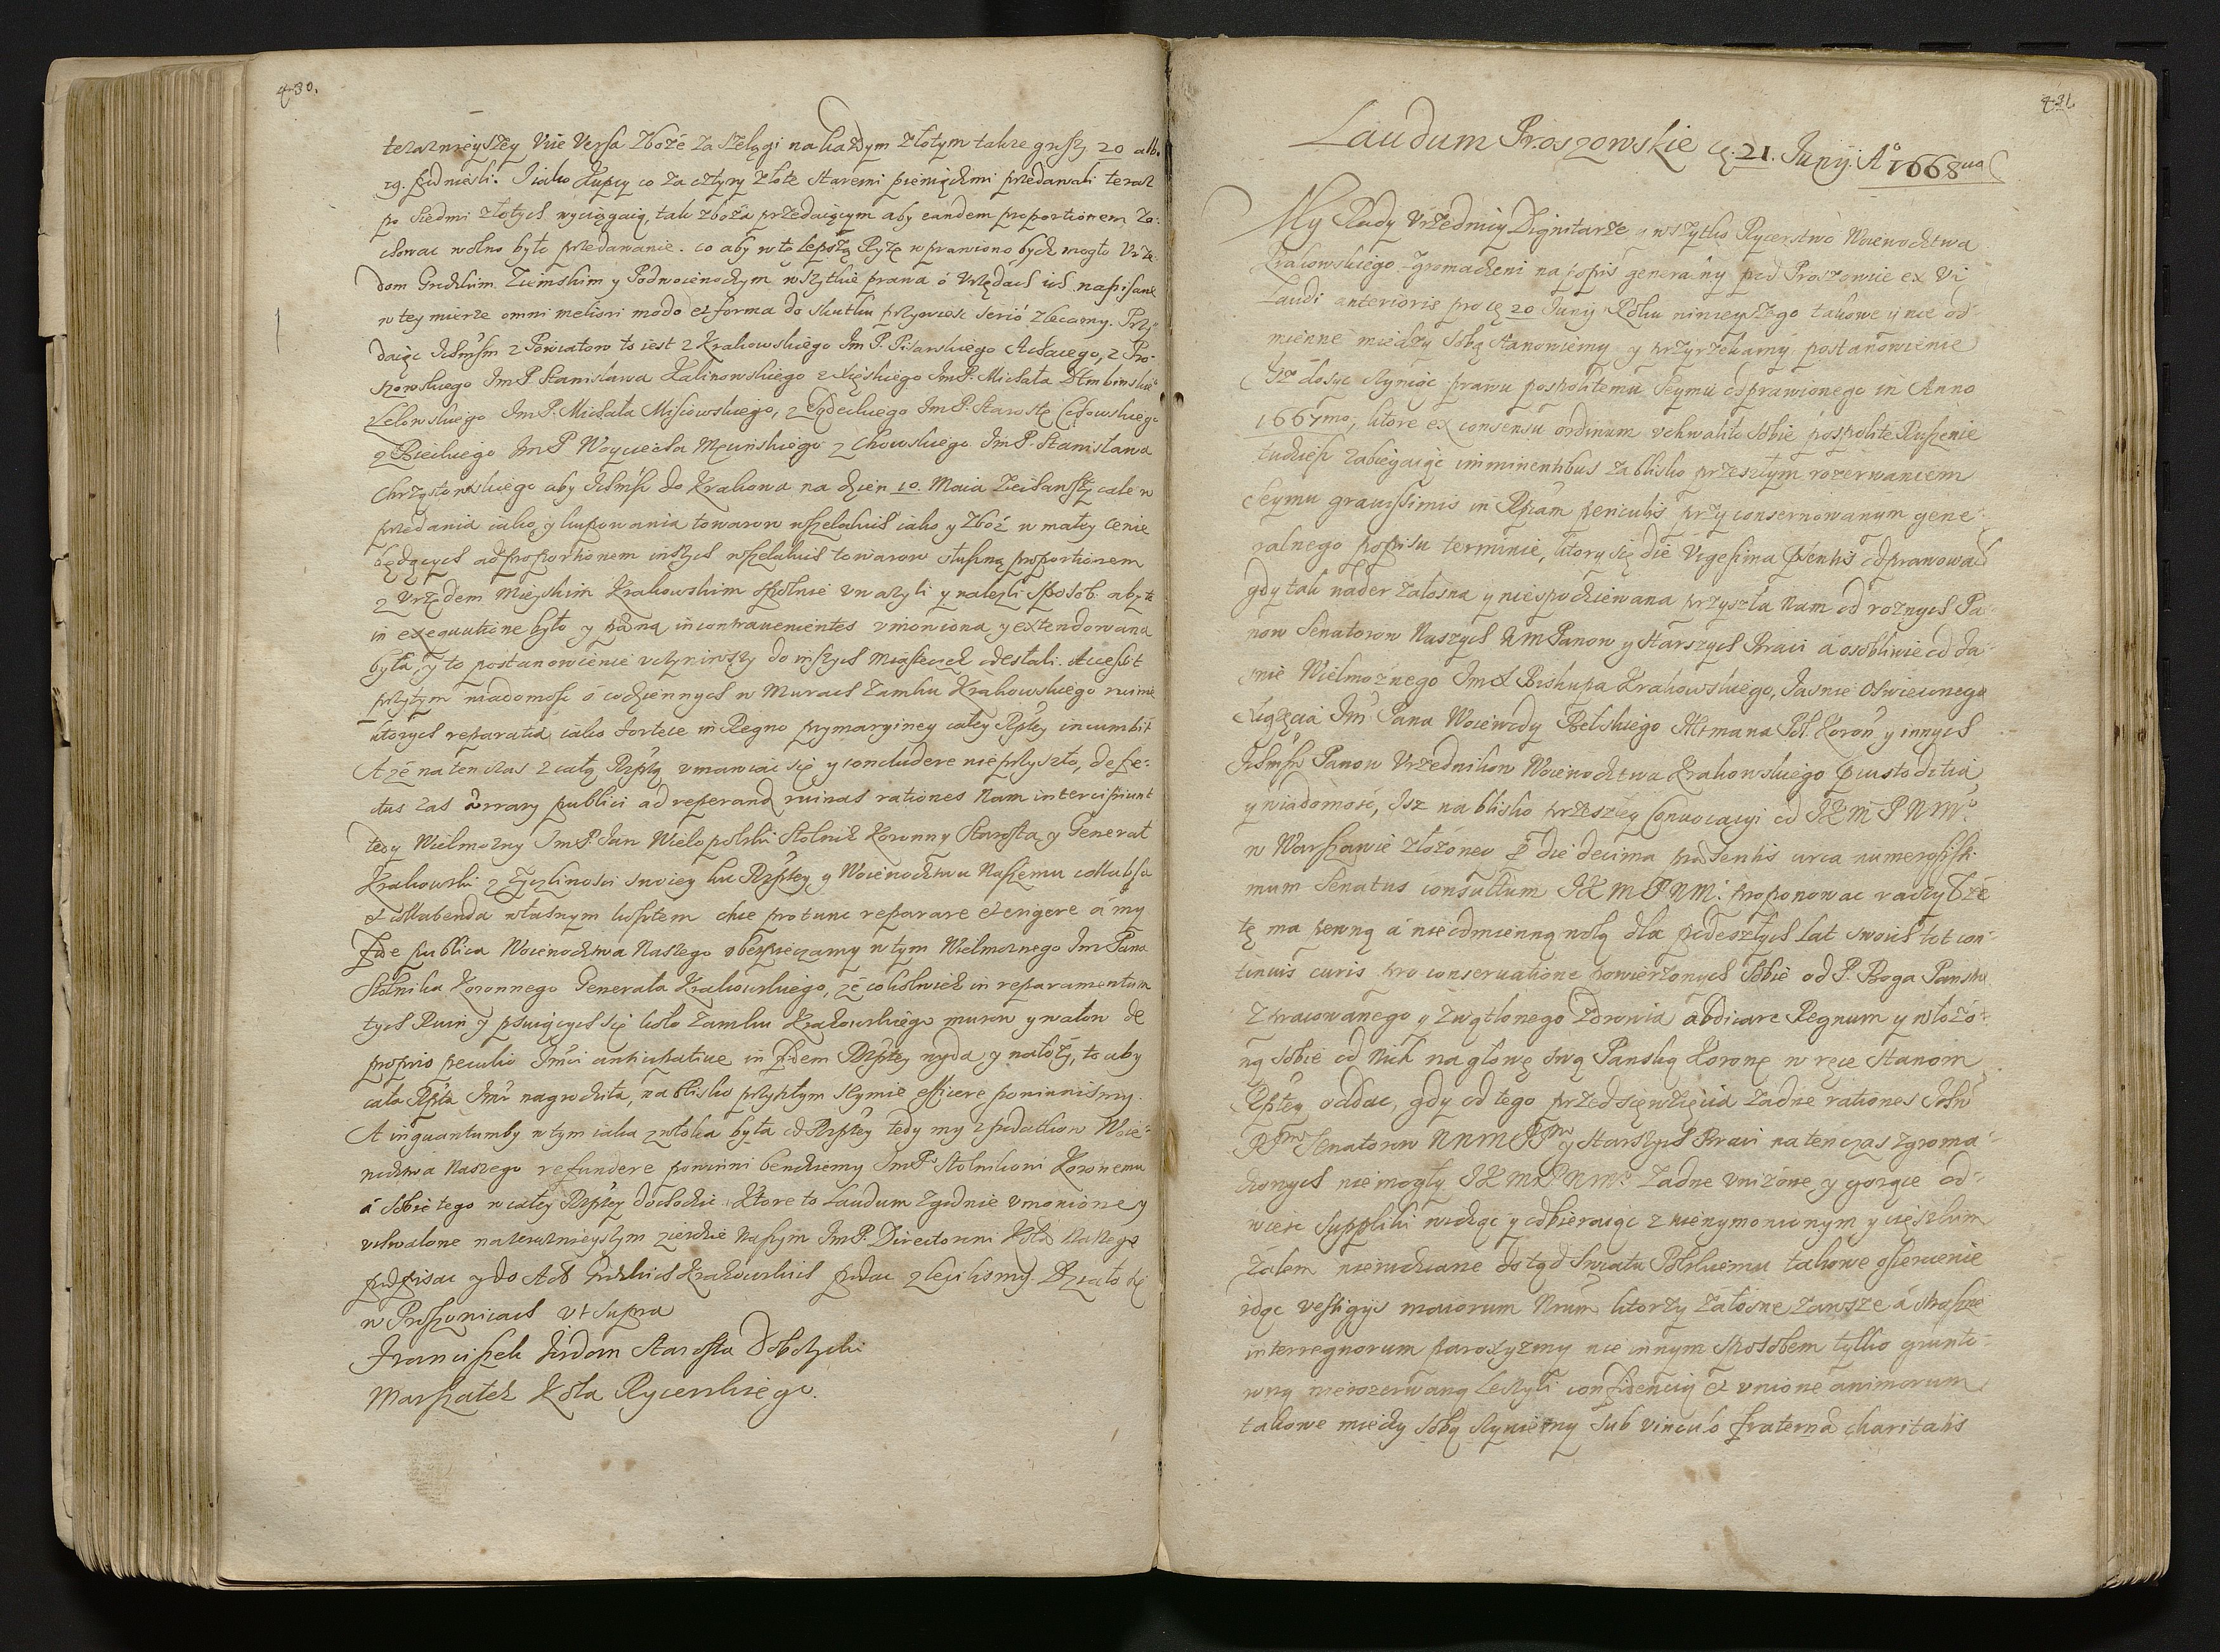 430.
teraznieyszey Vice Versa Zboże za szelągi na każdym złotym także grszy 20 albo
19. podnieśli. Jako Kupcy co za cztyry złote staremi pieniędzmi przedawali teraz
po siedmi złotych wyciągaią, tak zboża przedaiącym aby eandem proportionem za:
chowac wolno było przedawanie. co aby w tę lepszą Ryzę wprawiono bydz mogło Vrzę
dom Grodzkim Ziemskim y Podwoiewodzym wszytkie prawa o Vrzędach ich napisane
w tey mierze omni meliori modo et forma do skutku przywiesc serio zlecamy. Przy
daiąc Ichmsm z Powiatow to iest z Krakowskiego Im P. Pisarskiego, z Pro:
szowskiego Im P. Stanisława Kalinowskiego z Xięskiego Im P. Michała Dembinskie
z Lelowskiego Im P. Michała Misiowskiego, z Sądeckiego Im P. Starostę Czchowskiego
z Bieckiego Im P Woyciecha Męcinskiego z Chowskiego Im P. Stanisława
Chrząstowskiego aby Ichmsc do Krakowa na dzien 10. Maia ziechawszy cale w
przedania iako y kupowania towarow wszelakich iako y Zboż w małey cenie
będących ad proportionem inszych wszelakich towarow słuszną proportionem
z Vrzędem Mieyskim Krakowskim spolnie vważyli y nalezli sposob aby to
in exequutione było y pæna in contravenientes vmowiona y extendowana
była, y to postanowienie vczyniwszy do inszych Miasteczek odesłali. Accessit
przytym wiadomosc o codziennych w Murach Zamku Krakowskiego ruinie
ktorych reparatia iako Fortece in Regno prymaryiney całey Rptey incumbit
A że na tenczas z całą Rzptą vmawiac się y concludere nie przyszło, defe:
ctus zas ærary publici ad reperand ruinas rationes Nam intercipiunt
tedy Wielmożny Im P. Jan Wielopolski Stolnik Koronny Starosta y Generał
Krakowski z życzliwosci swoiey ku Rzptey y Woiewodztwu Naszemu collabsa
et collabenda własnym kosztem chce pro tunc reparare et erigere a my
fide publica Woiewodztwa Naszego vbezpieczamy w tym Wielmożnego Im Pana
Stolnika Koronnego Generała Krakowskiego, że cokolwiek in reparamentum
tych Ruin y psuiących się koło Zamku Krakowskiego murow y wałow de
proprio peculio Imci anticipative in fidem Rzptey wyda y nałoży, to aby
cała Rpta Imci nagrodziła, na blisko przyszłym Seymie efficere powinnismy.
A inquantumby w tym iaka zwłoka była od Rzptey tedy my z podatkow Woie:
wodztwa Naszego refundere powinni bendziemy Im P. Stolnikowi Koronemu
a sobie tego w całey Rzptey dochodzic. Ktore to Laudum zgodnie vmowione y
vchwalone na teraznieyszym zieździe Naszym Im P. Directorowi Koła Naszego
podpisac y do Act Grodzkich Krakowskich podac zlecilismy. Działo się
w Proszowicach vt supra
Franciszek Jordan Starosta Dobczycki
Marszałek Koła Rycerskiego.
431.
Laudum Proszowskie d. 21. Junij A° 1668vo
My Rady Vrzednicy Dignitarze y wszytko Rycerstwo Woiewodztwa
Krakowskiego zgromadzeni na popis generalny pod Proszowice ex vi
Laudi anterioris pro d. 20 Juny Roku ninieyszego takowe y nie od:
mienne miedzy sobą stanowiemy y przyrzekamy postanowienie
Iż dosyc czyniąc prawu pospolitemu Seymu odprawionego in Anno
1667mo, ktore ex consensu ordinum vchwaliło sobie pospolite Ruszenie
tudziesz zabiegaiąc imminentibus za blisko przeszłym rozerwaniem
Seymu gravissimis in Rpcam periculis przy consernowanym gene:
ralnego popisu terminie, ktory się die Vigesima Præntis odprawował
gdy tak nader żałosna y niespodziewana przyszła Nam od rożnych Pa:
now Senatorow Naszych MM Panow y Starszych Braci a osobliwie od Ja:
snie Wielmożnego Im X Biskupa Krakowskiego, Jasnie Oswieconego
Xiążęcia Im Pana Woiewody Bełskiego Hetmana Pol. Koron y innych
Ichmsc Panow Vrzednikow Woiewodztwa Krakowskiego
y wiadomosc, Isz na blisko przeszłey Convocacyi od JKM P N Mo
w Warszawie złożoney die decima præsentis circa numerosissi:
mum Senatus consultum JKM P N M. proponowac raczył że
tę ma pewną a nieodmienną wolą dla podeszłych lat swoich tot con:
tinuis curis pro conservatione powierzonych sobie od P. Boga Panstw
zpracowanego y zwątlonego Zdrowia abdicare Regnum y włożo:
ną sobie od Nich na głowę swą Panską Koronę w ręce Stanom
Rptey oddac, gdy od tego przedsięwzięcia żadne rationes Ichm
Senatorow N N M y Starszych Braci na tenczas zgroma:
dzonych nie mogły JKM P N M żadne vniżone y gorące od:
wiesc suppliki widząc y odbieraiąc z niewymowionym y cięszkim
żalem niewidziane dotąd Swiatu Polskiemu takowe osierocenie
idąc vestigys maiorum Nrum ktorzy żałosne zawsze a straszne
interregnorum paroxyzmy nie innym sposobem tylko grunto:
wną nierozerwaną leczyli confidencią et vnione animorum
takowe miedzy sobą czyniemy sub vinculo fraternæ charitatis